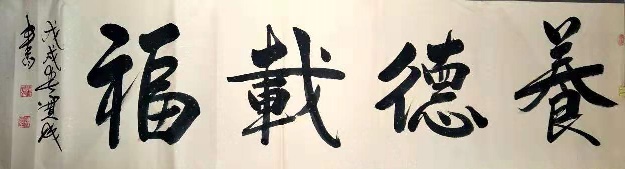 養德載福
戊戌
書